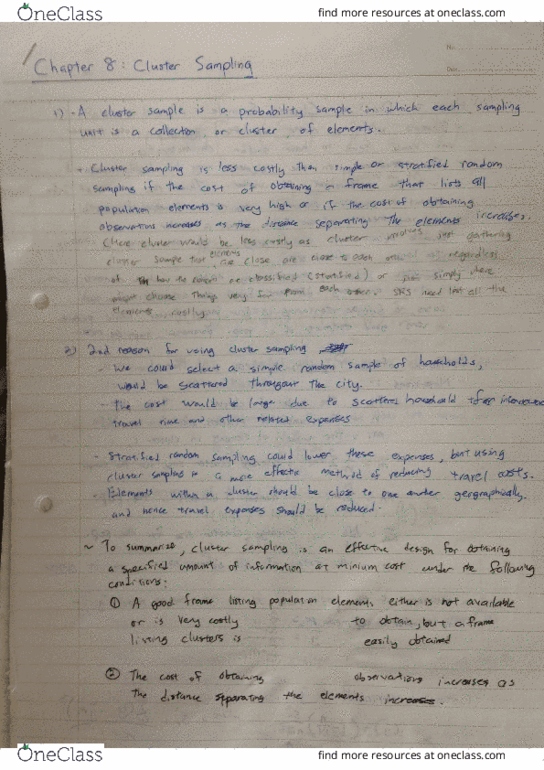 OneClass
find more resources at oneclass.com
No.
Date.
Chapter 8: Cluster Sampling
1) - A cluster sample is a probability sample in which each sampling
unit is a collection, or cluster, of elements.
Cluster sampling is less costly than simple or stratified random
sampling if the cost of obtaining a frame that lists all
population elements is very high or if the cost of obtaining
observations increases as the distance separating the elements increases.
(Here cluster would be less costly as cluster just gathering
cluster sample that elements are close are close to each regardless
of how the are classified (stratified) or simply have
choose things very far from each other. SRS need list all the
elements costly.
2) 2nd reason for using cluster sampling
- We could select a simple random sample of households,
would be scattered throughout the city.
- The cost would be large due to household for
travel time and other related expenses
- Stratified random sampling could lower these expenses, but using
cluster samples is a more effective method of reducing travel costs.
- Elements within a cluster should be close to one geographically,
and hence travel expenses should be reduced.
~ To summarise, cluster sampling is an effective design for obtaining
a specified amount of information at minium cost under the following
conditions:
① A good frame listing population elements either is not available
or is very costly to obtain, but a frame
listing clusters is easily obtained
② The cost of obtaining observations increases as
the distance separating the elements increases.
OneClass
find more resources at oneclass.com